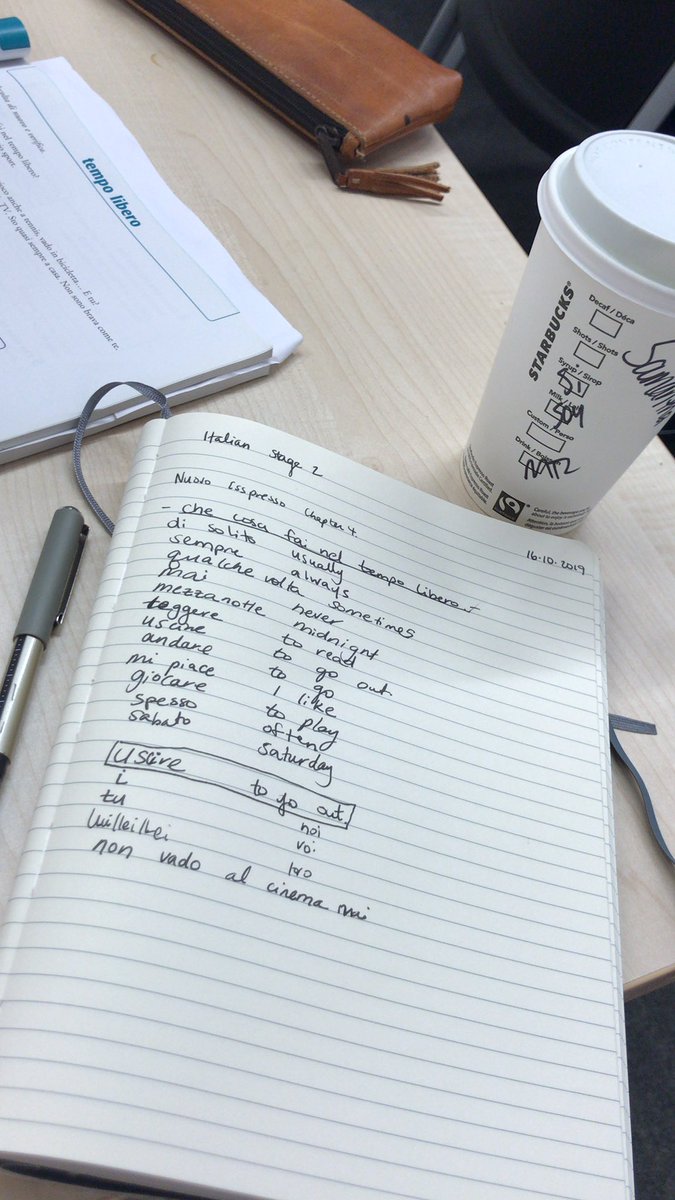 di nuovo e verifica.
nel tempo libero?
sport.
anche a tennis, vado in bicicletta... E tu?
TV. Sto quasi sempre a casa. Non sono brava come te.
tempo libero
STARBUCKS®
Decaf / Déca
Shots / Shots
Syrup / Sirop
Milk /
Soy
Custom /
Drink /
Italian Stage 2
Nuovo Esspresso Chapter 4
16.10.2019
- che cosa fai nel tempo libero -
di solito usually
sempre always
qualche volta sometimes
mai never
mezzanotte midnight
leggere to read
uscire to go out
andare to go
mi piace I like
giocare to play
spesso often
sabato Saturday
uscire to go out.
i noi
tu voi
lui/lei/Lei loro
non vado al cinema mai